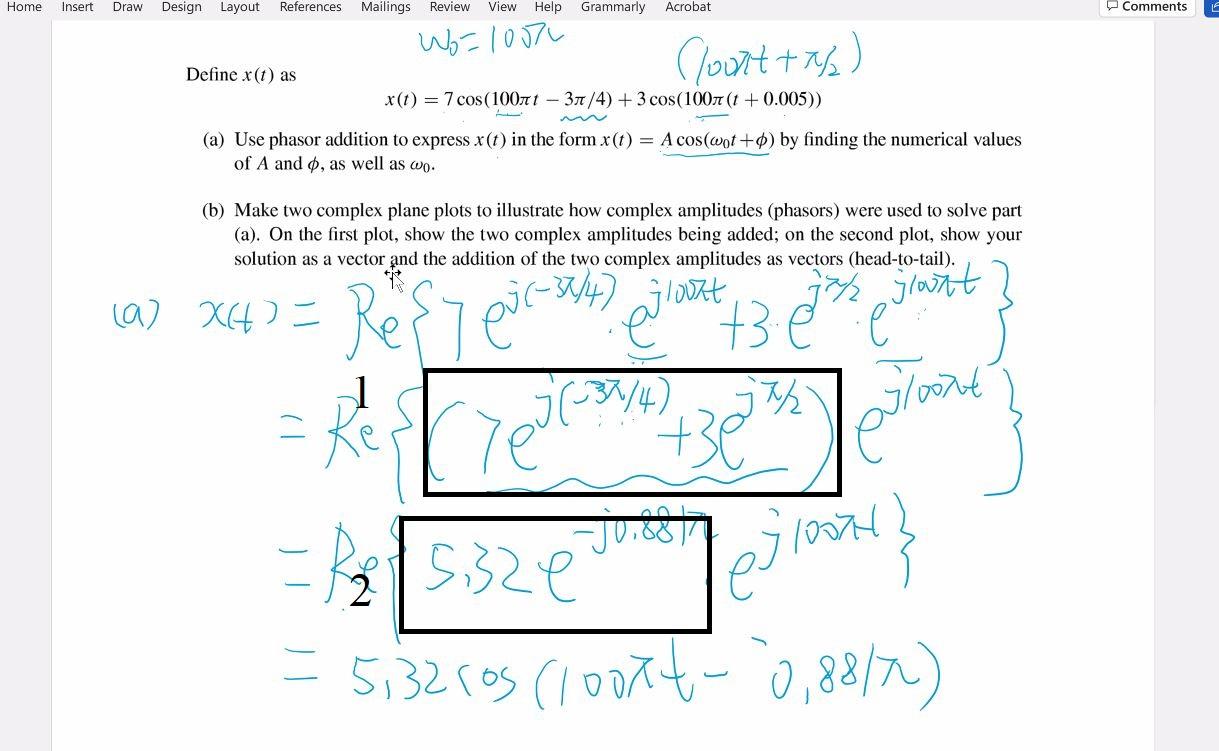 Home Insert Draw Design Layout References Mailings Review View Help Grammarly Acrobat Comments
ω₀ = 100π
(100πt + π/2)
Define x(t) as
x(t) = 7 cos(100πt − 3π/4) + 3 cos(100π(t + 0.005))
(a) Use phasor addition to express x(t) in the form x(t) = A cos(ω₀t+ϕ) by finding the numerical values
of A and ϕ, as well as ω₀.
(b) Make two complex plane plots to illustrate how complex amplitudes (phasors) were used to solve part
(a). On the first plot, show the two complex amplitudes being added; on the second plot, show your
solution as a vector and the addition of the two complex amplitudes as vectors (head-to-tail).
(a) x(t) = Re{7e^{j(-3π/4)} · e^{j100πt} + 3 · e^{jπ/2} · e^{j100πt}}
1
= Re{(7e^{j(-3π/4)} + 3e^{jπ/2}) e^{j100πt}}
= Re{5.32e^{-j0.881π} · e^{j100πt}}
2
= 5.32 cos(100πt - 0.881π)